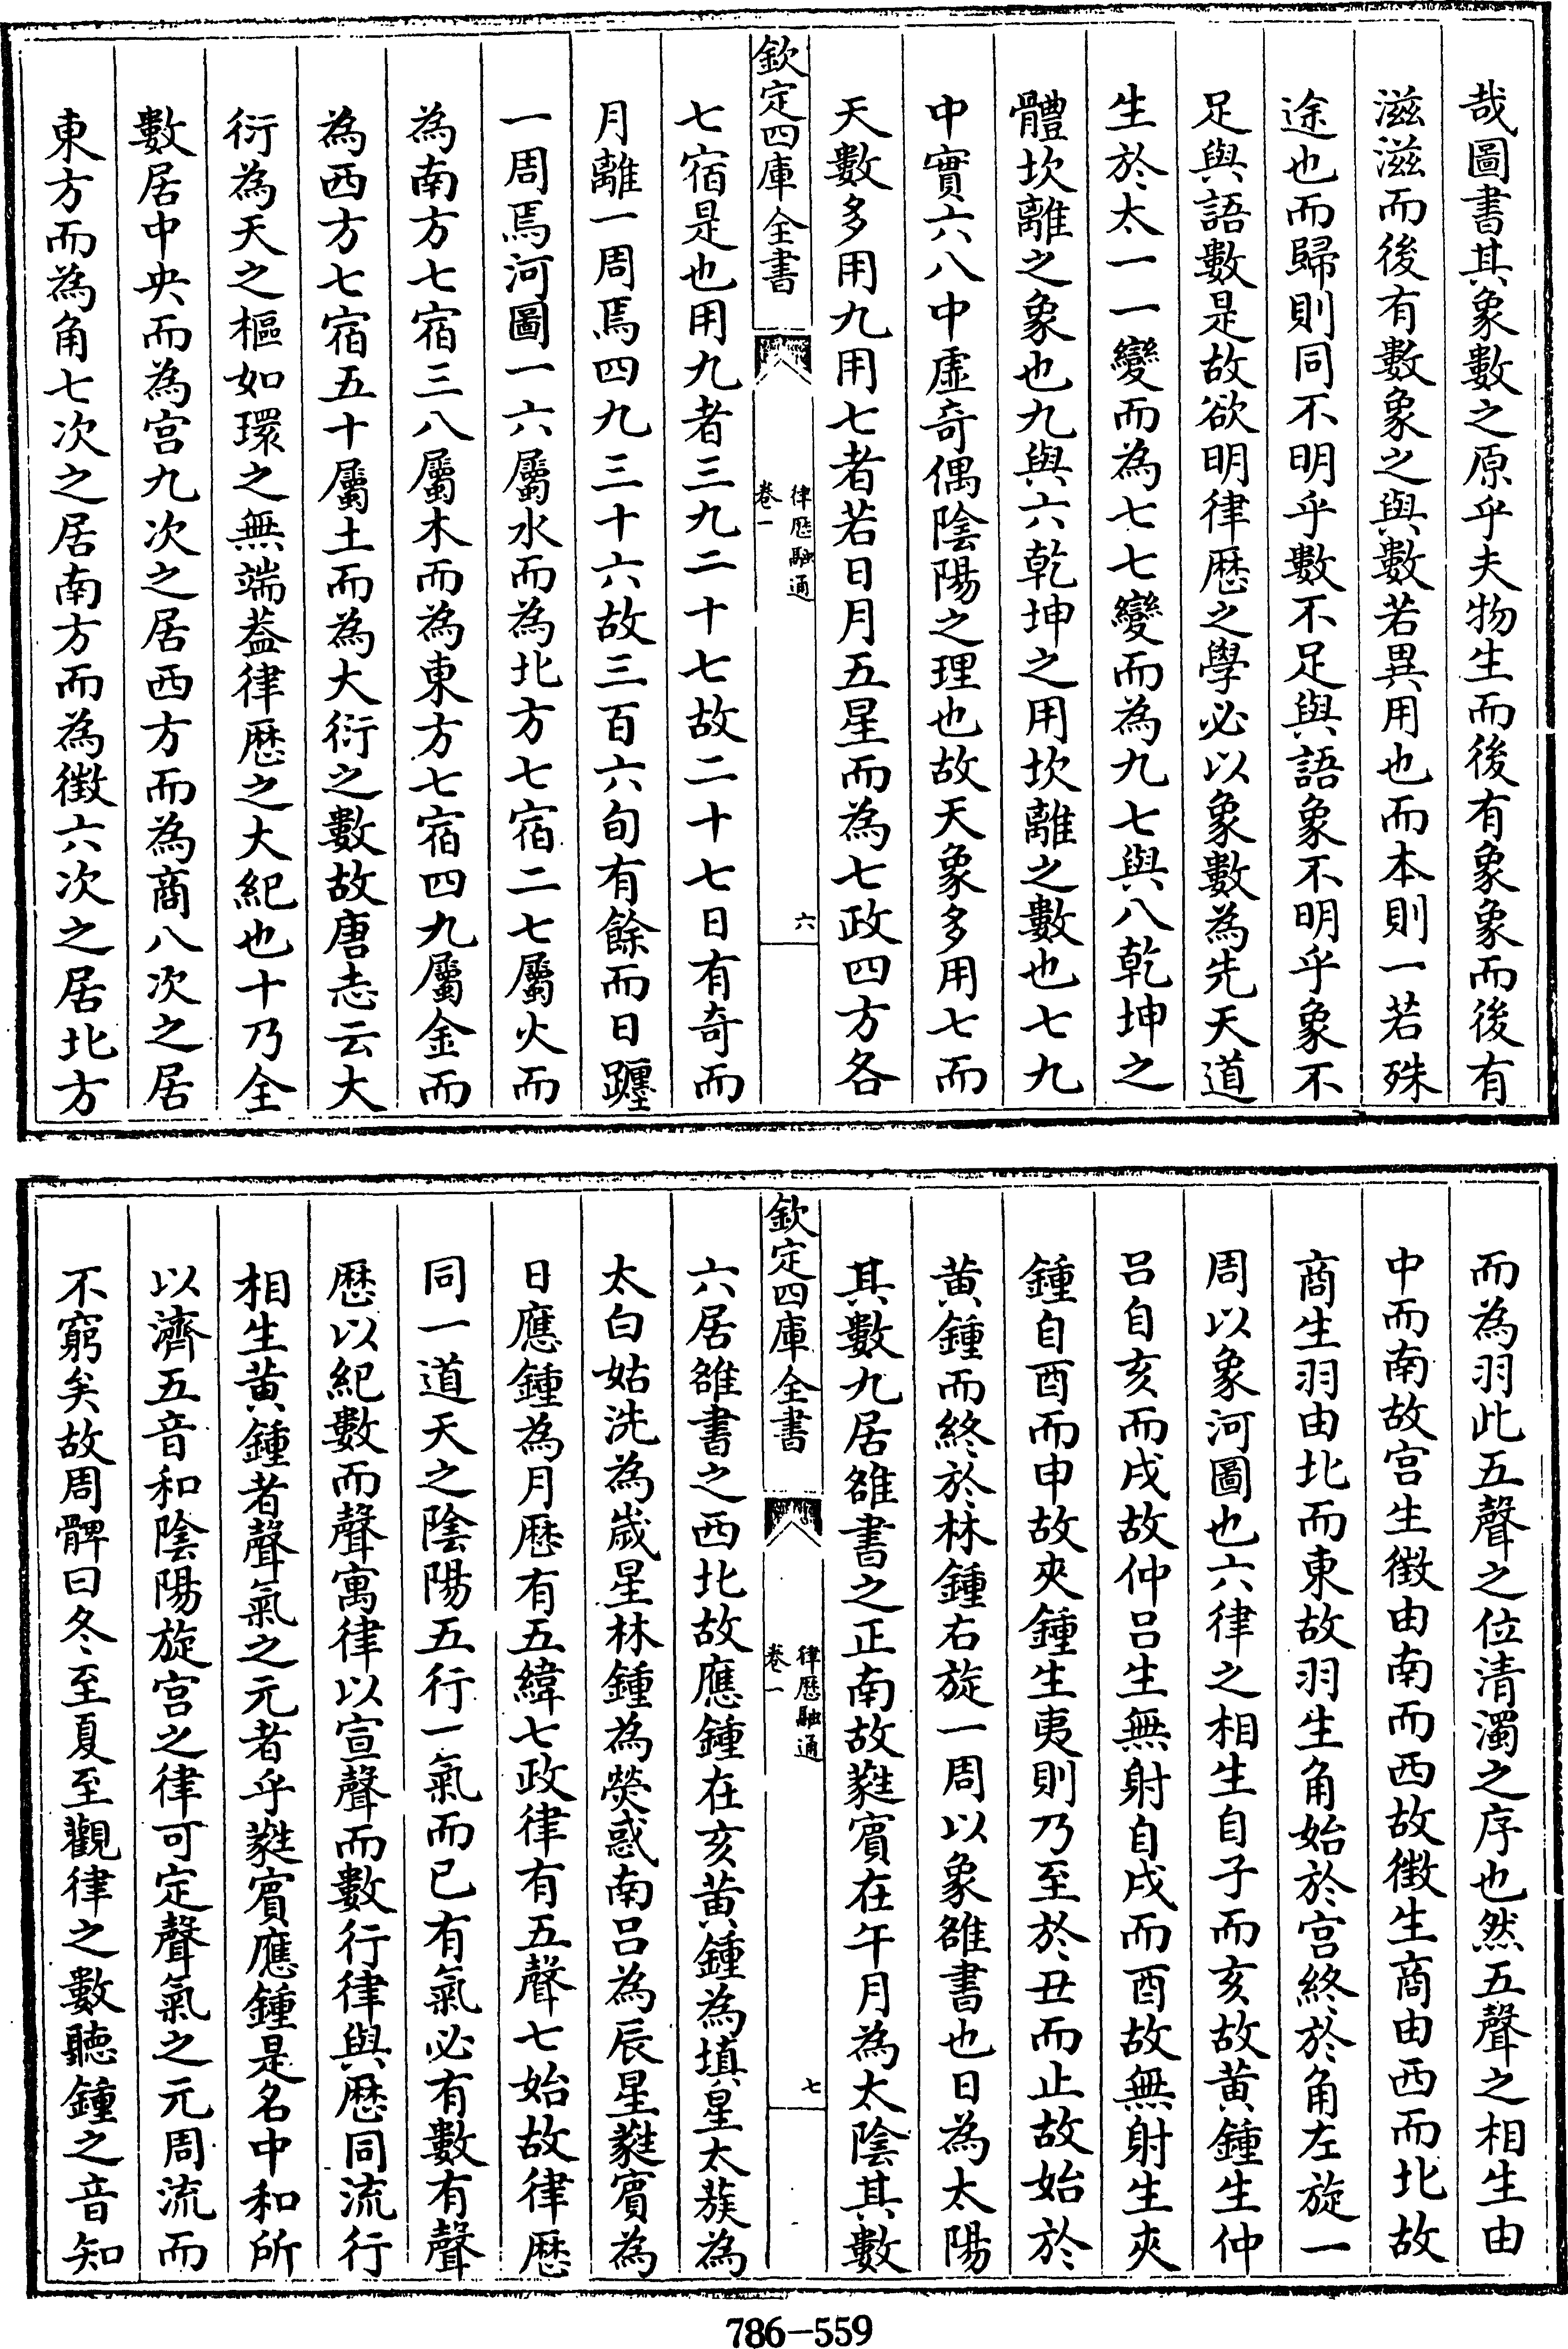 哉圖書其象數之原乎夫物生而後有象象而後有
滋滋而後有數象之與數若異用也而本則一若殊
途也而歸則同不明乎數不足與語象不明乎象不
足與語數是故欲明律厯之學必以象數為先天道
生於太一一變而為七七變而為九七與八乾坤之
體坎離之象也九與六乾坤之用坎離之數也七九
中實六八中虛奇偶陰陽之理也故天象多用七而
天數多用九用七者若日月五星而為七政四方各
欽定四庫全書
律厯融通
卷一
六
七宿是也用九者三九二十七故二十七日有奇而
月離一周焉四九三十六故三百六旬有餘而日躔
一周焉河圖一六屬水而為北方七宿二七屬火而
為南方七宿三八屬木而為東方七宿四九屬金而
為西方七宿五十屬土而為大衍之數故唐志云大
衍為天之樞如環之無端葢律厯之大紀也十乃全
數居中央而為宫九次之居西方而為商八次之居
東方而為角七次之居南方而為徵六次之居北方
而為羽此五聲之位清濁之序也然五聲之相生由
中而南故宫生徵由南而西故徵生商由西而北故
商生羽由北而東故羽生角始於宫終於角左旋一
周以象河圖也六律之相生自子而亥故黄鍾生仲
呂自亥而戌故仲呂生無射自戌而酉故無射生夾
鍾自酉而申故夾鍾生夷則乃至於丑而止故始於
黄鍾而終於林鍾右旋一周以象雒書也日為太陽
其數九居雒書之正南故蕤賓在午月為太陰其數
欽定四庫全書
律厯融通
卷一
七
六居雒書之西北故應鍾在亥黄鍾為填星太蔟為
太白姑洗為歲星林鍾為熒惑南呂為辰星蕤賓為
日應鍾為月厯有五緯七政律有五聲七始故律厯
同一道天之陰陽五行一氣而已有氣必有數有聲
厯以紀數而聲寓律以宣聲而數行律與厯同流行
相生黄鍾者聲氣之元者乎蕤賓應鍾是名中和所
以濟五音和陰陽旋宫之律可定聲氣之元周流而
不窮矣故周髀曰冬至夏至觀律之數聽鍾之音知
786-559